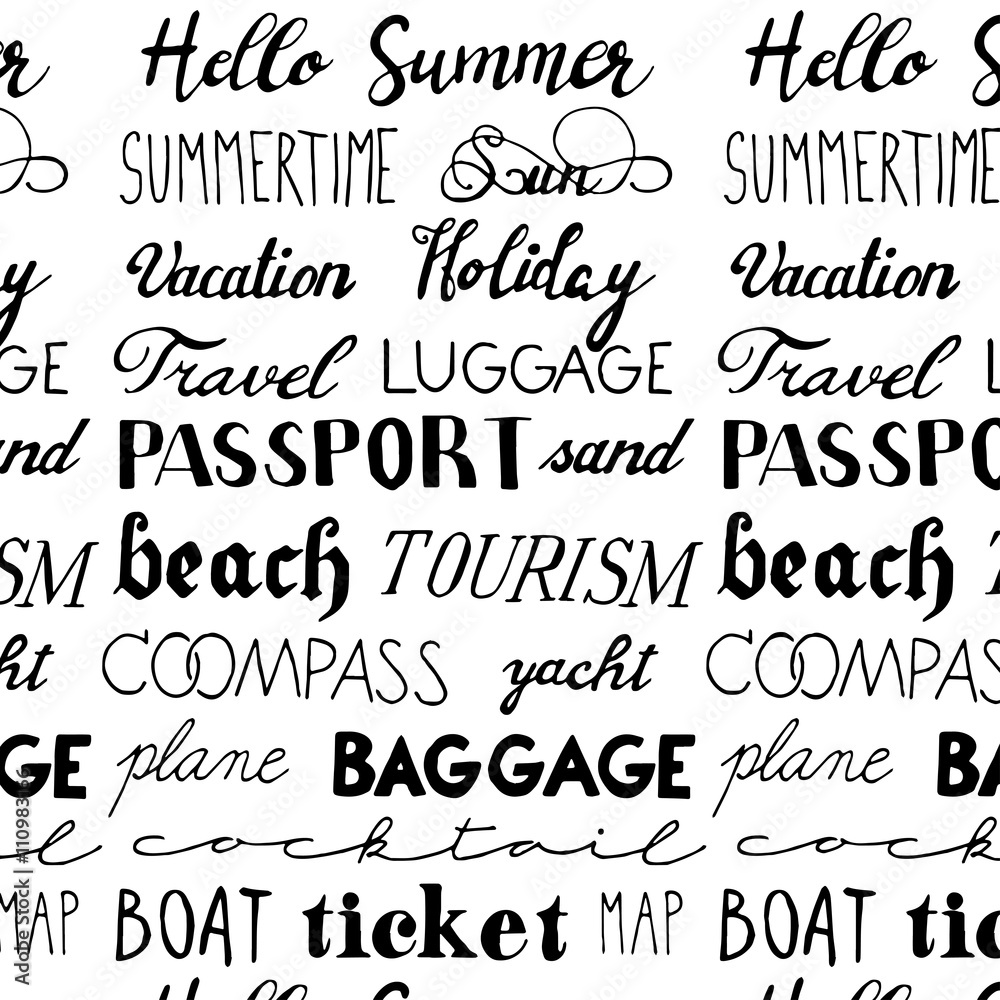 er Hello Summer Hello S
SUMMERTIME Sun SUMMERTIME
y Vacation Holiday Vacation
GE Travel LUGGAGE Travel L
and PASSPORT sand PASSPO
SM beach TOURISM beach T
ht COOMPASS yacht COOMPAS
GE plane BAGGAGE plane BA
l cocktail cock
MAP BOAT ticket MAP BOAT tic
Hello S
Adobe Stock | #110983166